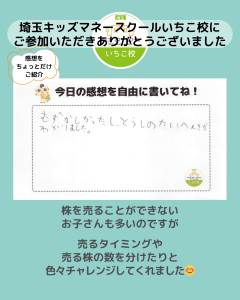 埼玉キッズマネースクールいちご校に
ご参加いただきありがとうございました
いちご校
感想を
ちょっとだけ
ご紹介
今日の感想を自由に書いてね！
むずかしかったし、とうしのたいへんさが
わかりました。
株を売ることができない
お子さんも多いのですが
売るタイミングや
売る株の数を分けたりと
色々チャレンジしてくれました😊